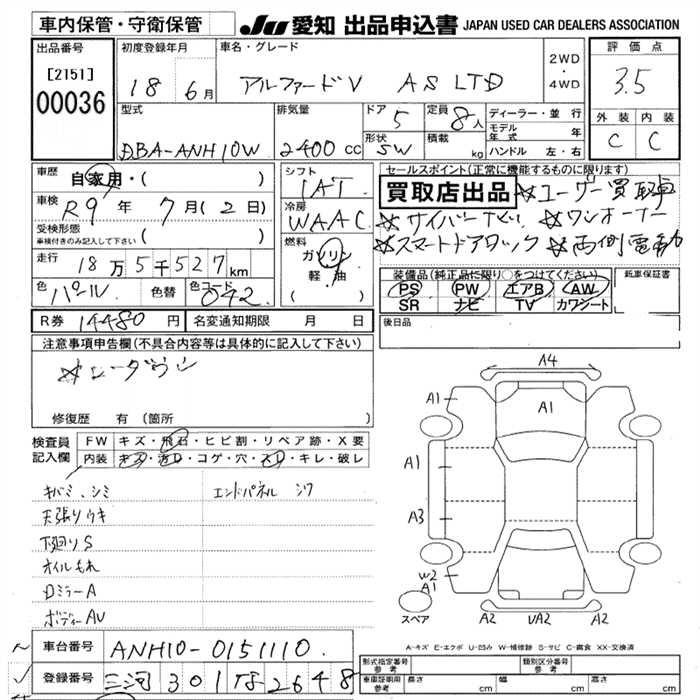 車内保管・守衛保管
JU 愛知 出品申込書 JAPAN USED CAR DEALERS ASSOCIATION
出品番号
[2151]
00036
初度登録年月
18 年 6月
車名・グレード
アルファードV AS LTD
2WD
・
4WD
評価点
3.5
外装 内装
C C
型式
DBA-ANH10W
排気量
2400 cc
ドア 5
形状 SW
定員 8人
積載 kg
ディーラー・並行
モデル年式 年
ハンドル 左・右
車歴 自家用・( )
車検 R9年 7月(2日)
受検形態
車検付きのみ記入して下さい ( )
走行 18万5千527km
色 パール 色替 色コード 042
シフト
IAT
冷房
WAAC
燃料
ガソリン
軽油
( )
セールスポイント(正常に機能するものに限ります)
買取店出品 ☆ユーザー買取車
☆サイバーナビ ☆ワンオーナー
☆スマートドアロック ☆両側電動
装備品(純正品に限り○をつけてください)
PS PW エアB AW
SR ナビ TV カワシート
新車保証書
後日品
R券 14480円 名変通知期限 月 日
注意事項申告欄(不具合内容等は具体的に記入して下さい)
☆ローダウン
修復歴 有(箇所 )
検査員
記入欄
FW キズ・飛石・ヒビ割・リペア跡・X要
内装 キズ・汚れ・コゲ・穴・スレ・キレ・破レ
キバミ、シミ エンドパネル シワ
天張りウキ
下廻りS
オイルもれ
DミラーA
ボディーAU
A4
A1
A1
A1
A3
W2
A1
A2 UA2 A2
スペア
A-キズ E-エクボ U-凹み W-補修跡 S-サビ C-腐食 XX-交換済
車台番号 ANH10-0151110
登録番号 三河301 は2648
形式指定番号
参考
類別区分番号
参考
車庫証明用
参考
長さ cm
幅 cm
高さ cm